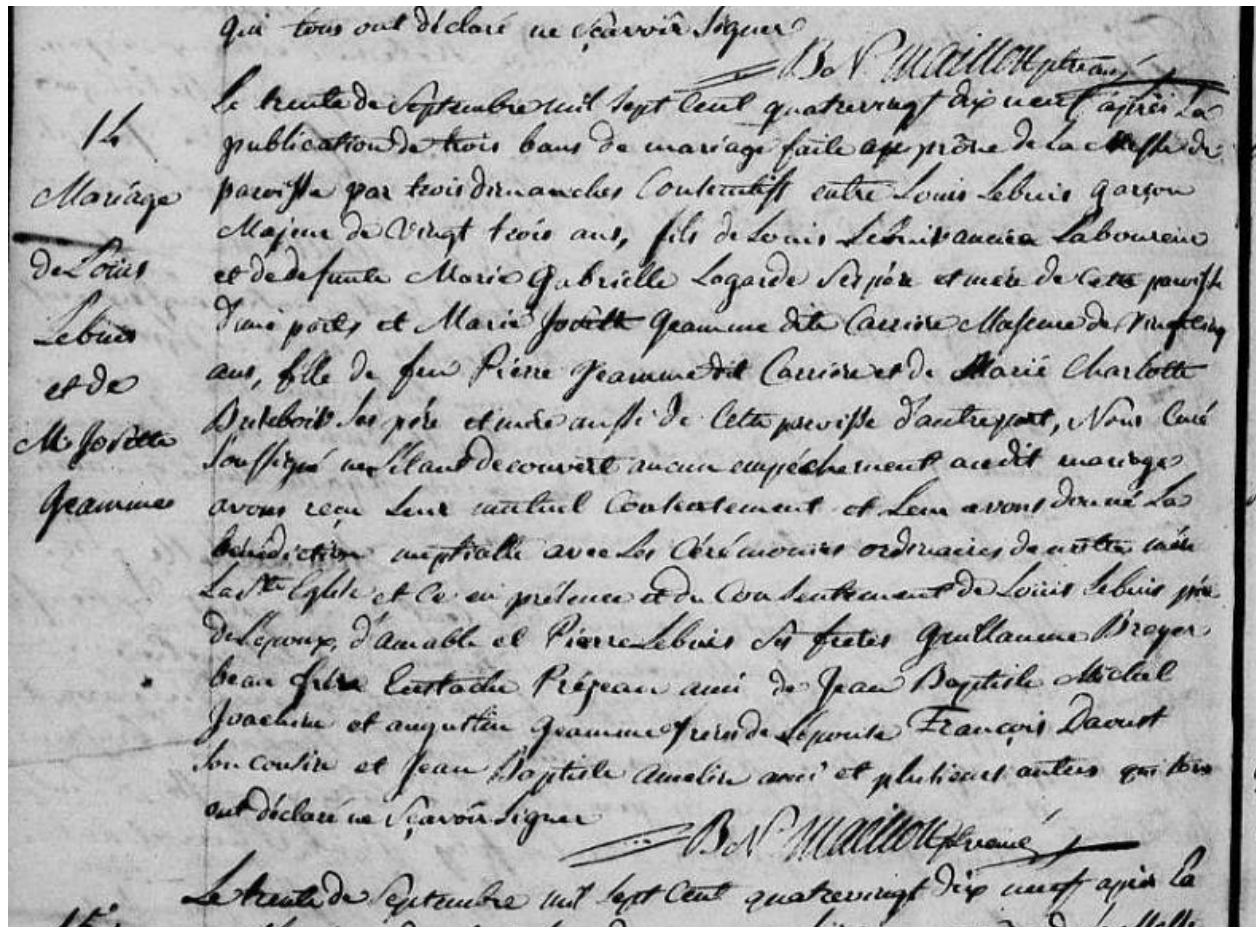 qui tous ont déclaré ne sçavoir signer
B N Maillou ptre curé
14
Mariage
de Louis
Lebuis
et de
M. Josette
Jeamme
Le trente de Septembre mil sept cent quatrevingt dix neuf après La
publication de trois bans de mariage faite au prône de La Messe de
paroisse par trois dimanches Consecutifs entre Louis Lebuis garçon
Majeur de Vingt trois ans, fils de Louis Lebuis ancien Laboureur
et de defunte Marie Gabrielle Lagarde Ses père et mère de Cette paroisse
d'une part, et Marie Josette Jeamme dite Carrière Majeure de Vingt cinq
ans, fille de feu Pierre Jeamme dit Carrière et de Marie Charlotte
Ses père et mère aussi de Cette paroisse d'autre part, Nous Curé
Soussigné ne S'étant decouvert aucun empéchement audit mariage
avons reçu Leur mutuel Consentement et Leur avons donné La
bénédiction nuptialle avec Les Cérémonies ordinaires de nottre mère
La Ste Eglise et Ce en présence et du Consentement de Louis Lebuis père
de L'epoux, d'amable et Pierre Lebuis Ses freres Guillaume Broyer
beau frère Eustache Préjean ami de Jean Baptiste Michel
Joachim et augustin Jeamme freres de L'épouse François Daoust
Son cousin et Jean Baptiste Amelin ami et plusieurs autres qui tous
ont déclaré ne Sçavoir Signer
B N Maillou ptre curé
Le trente de Septembre mil Sept Cent quatrevingt Dix neuf après La
15e